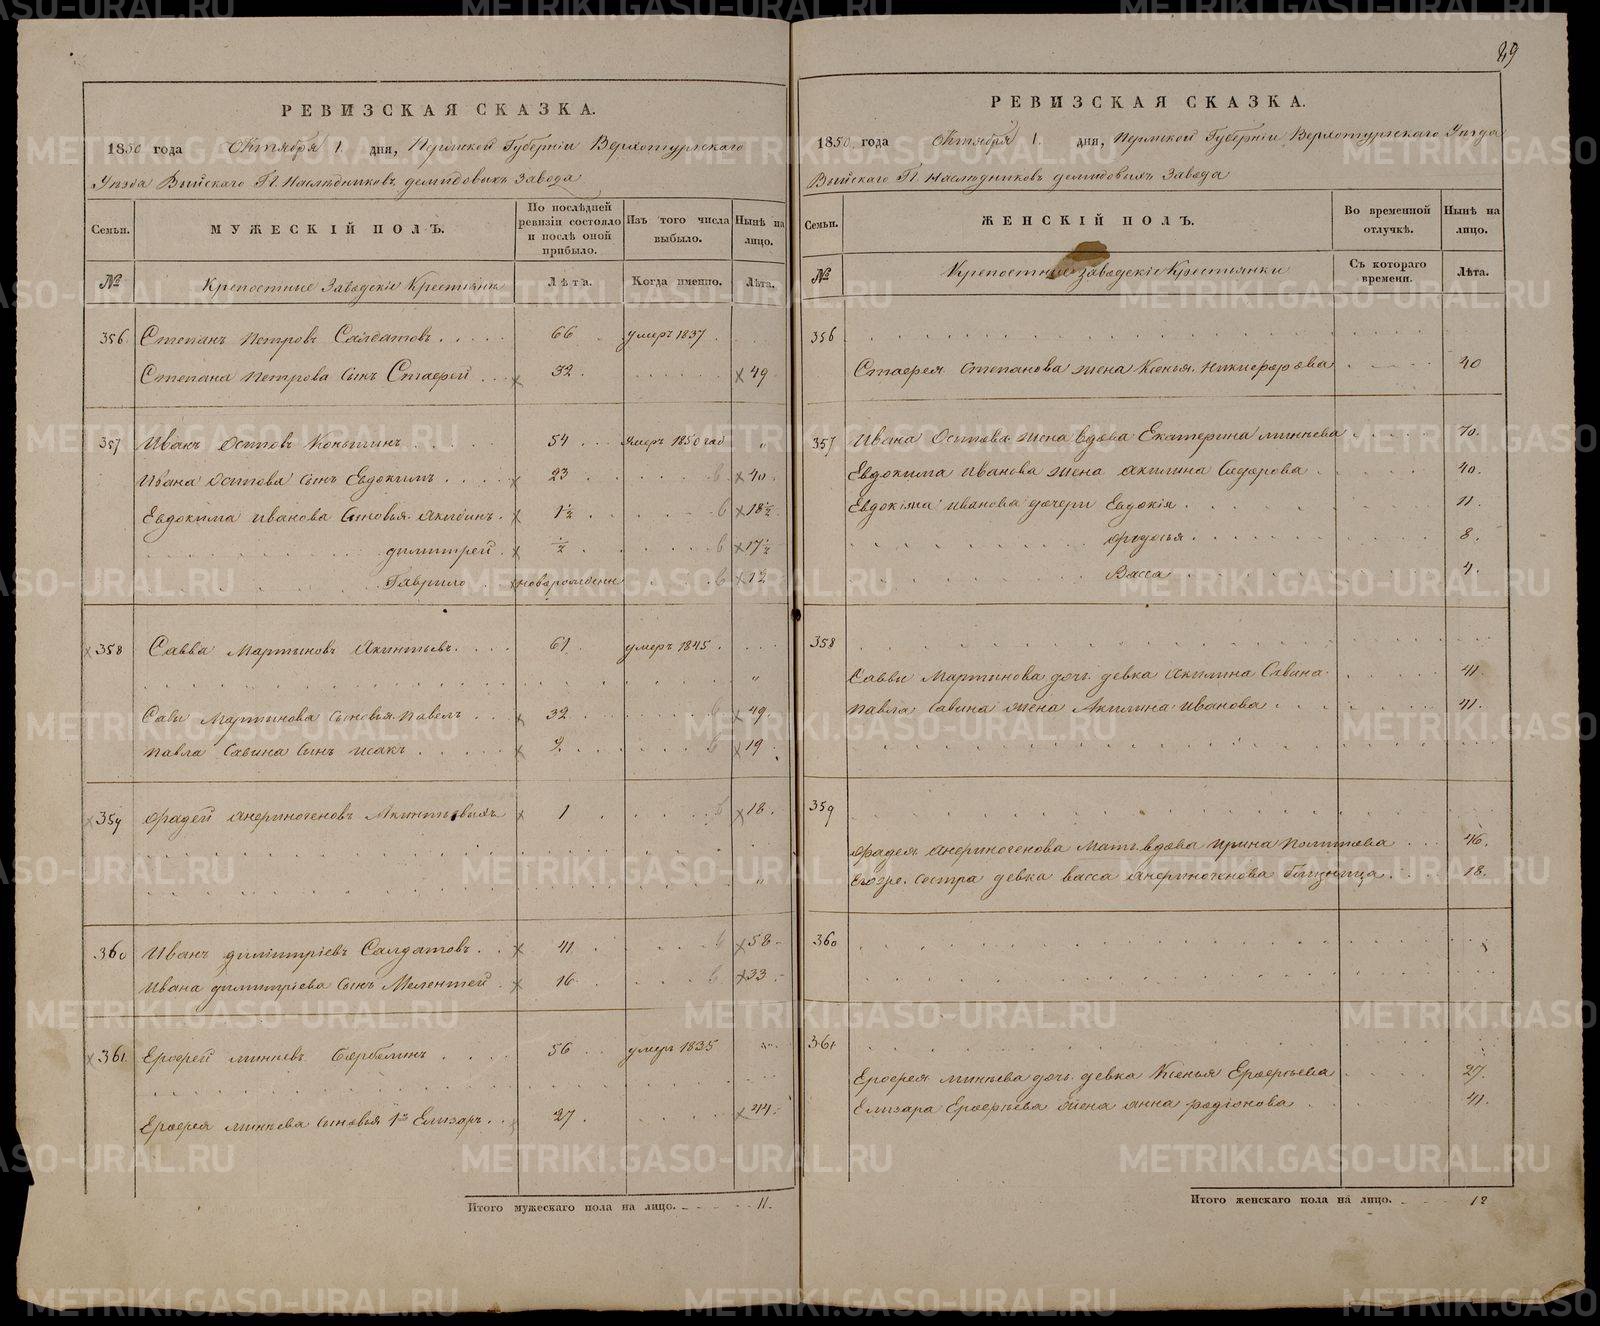 89
РЕВИЗСКАЯ СКАЗКА.
1850 года Октября 1. дня, Пермской Губерніи Верхотурскаго
Уѣзда Выйскаго Гг. Наслѣдниковъ демидовыхъ Завода
Семьи.
МУЖЕСКІЙ ПОЛЪ.
По послѣдней ревизіи состояло и послѣ оной прибыло.
Изъ того числа выбыло.
Нынѣ на лицо.
№ Крепостные Заводскіе Крестьяна Лѣта. Когда именно. Лѣта.
356 Степанъ Петровъ Салдатовъ 66 умеръ 1837
Степана Петрова Сынъ 32 49
357 Иванъ Осиповъ 54 1850
Ивана Осипова сынъ Евдокимъ 23 40
Евдокима Иванова Сыновья 1½ 18½
димитрей ½ 17½
Гаврило новорожденъ 12
358 Савва Мартиновъ 61 умеръ 1845
Савы Мартинова Сыновья Павелъ 32 49
Павла Савина Сынъ Исакъ 2 19
359 1 18
360 Иванъ димитріевъ Салдатовъ 41 58
Ивана димитріева Сынъ Мелентей 16 33
361 Ерофей минѣевъ 56 умеръ 1835
Ерофея минѣева Сыновья 1й Елизаръ 27 44
Итого мужескаго пола на лицо. 11.
РЕВИЗСКАЯ СКАЗКА.
1850 года Октября 1. дня, Пермской Губерніи Верхотурскаго Уѣзда
Выйскаго Гг. Наслѣдниковъ демидовыхъ Завода
Семьи.
ЖЕНСКІЙ ПОЛЪ.
Во временной отлучкѣ.
Нынѣ на лицо.
№ Крепостные заводскіе Крестьянки Съ котораго времени. Лѣта.
356
Степанова жена Ксенья Никифорова 40
357 Ивана Осипова жена вдова Екатерина минѣева 70.
Евдокима Иванова жена акилина Сидорова 40.
Евдокима Иванова дочери Евдокія 11.
8.
Васса 4.
358
Саввы Мартинова дочь девка акилина Савина 41
Павла Савина жена Акилина Иванова 41.
359
мать вдова Ирина 46.
сестра девка васса близница 18.
360
361
Ерофея минѣева дочь девка Ксенья Ерофеѣва 27.
Елизара Ерофеѣва жена анна родіонова 41.
Итого женскаго пола на лицо. 12
METRIKI.GASO-URAL.RU